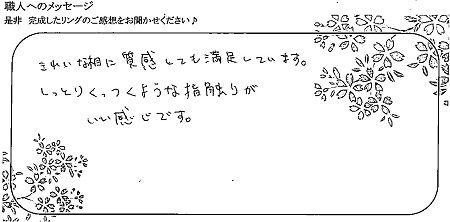 職人へのメッセージ
是非 完成したリングのご感想をお聞かせください♪
きれいな相に質感しても満足しています。
しっとりくっつくような指触りが
いい感じです。